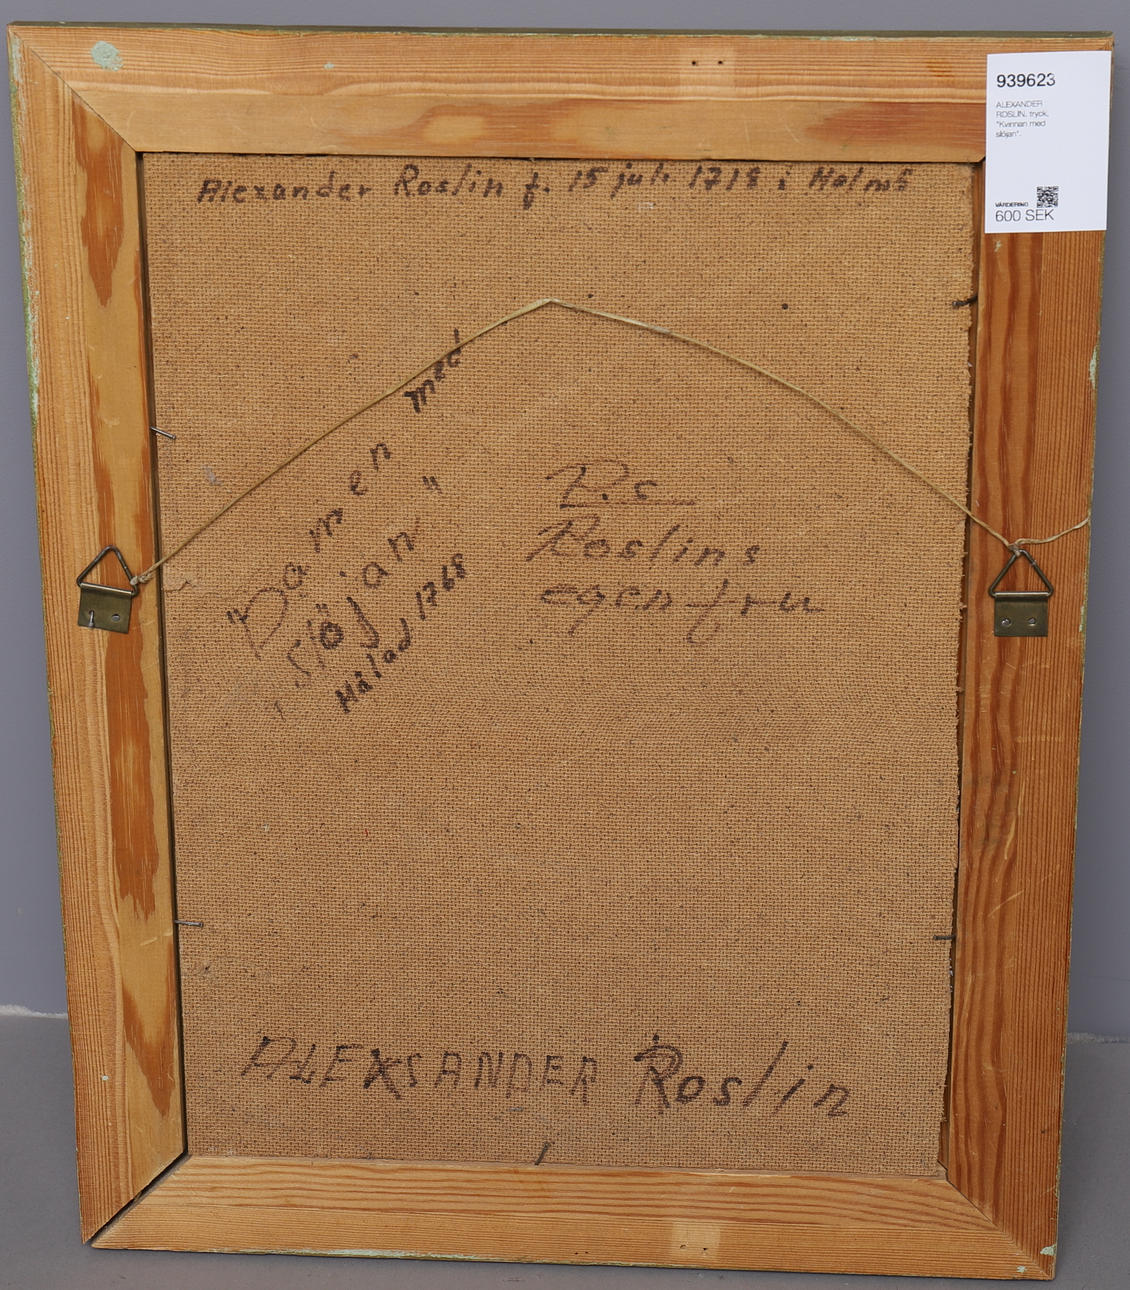 939623
ALEXANDER
ROSLIN, tryck,
"Kvinnan med
slöjan".
VÄRDERING
600 SEK
Alexander Roslin f. 15 juli 1718 i Malmö
"Damen med
slöjan"
Målad 1768
P.s
Roslins
egen fru
ALEXSANDER Roslin